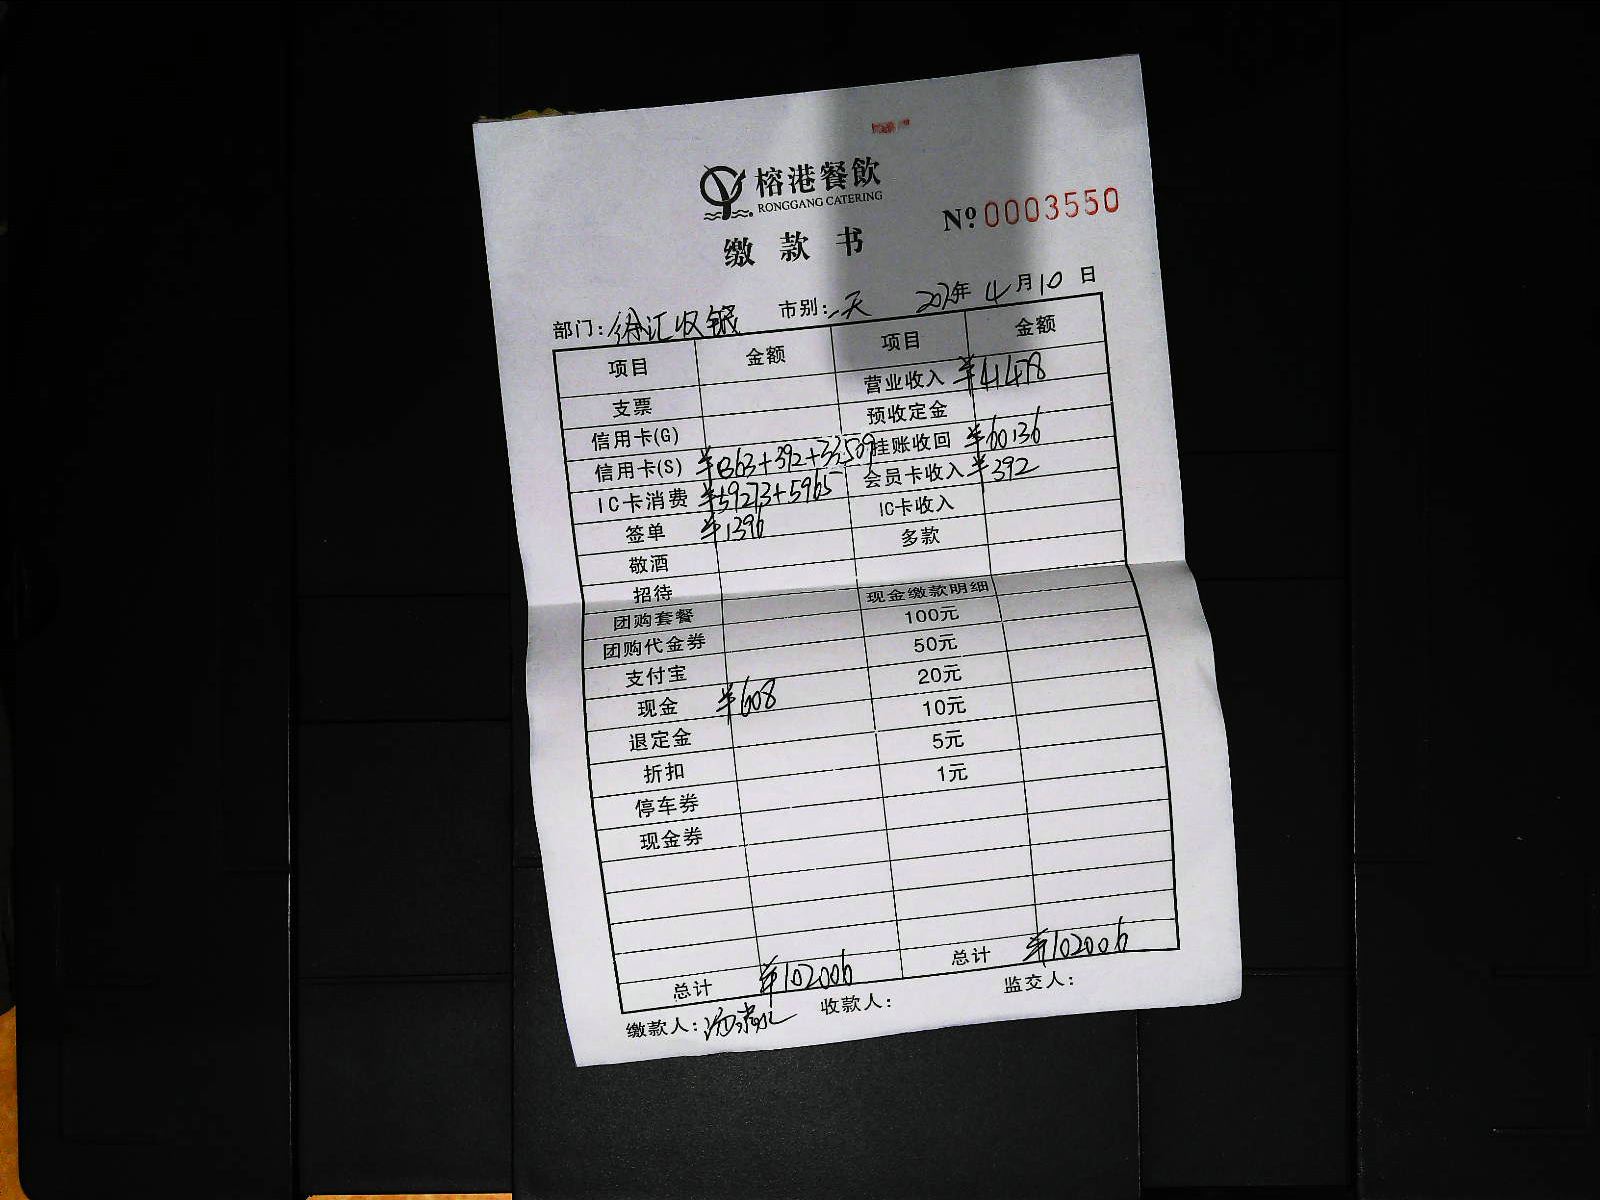 榕港餐飲
RONGGANG CATERING
№ 0003550
缴款书
部门:徐汇收银 市别:一天 2025年4月10日
项目 金额 项目 金额
支票 营业收入 ¥41478
信用卡(G) 预收定金
信用卡(S) ¥863+392+33509 挂账收回 ¥60136
IC卡消费 ¥59273+5965 会员卡收入 ¥392
签单 ¥1396 IC卡收入
敬酒 多款
招待
团购套餐 现金缴款明细
团购代金券 100元
支付宝 50元
现金 ¥608 20元
退定金 10元
折扣 5元
停车券 1元
现金券
总计 ¥102006 总计 ¥102006
缴款人: 收款人: 监交人: